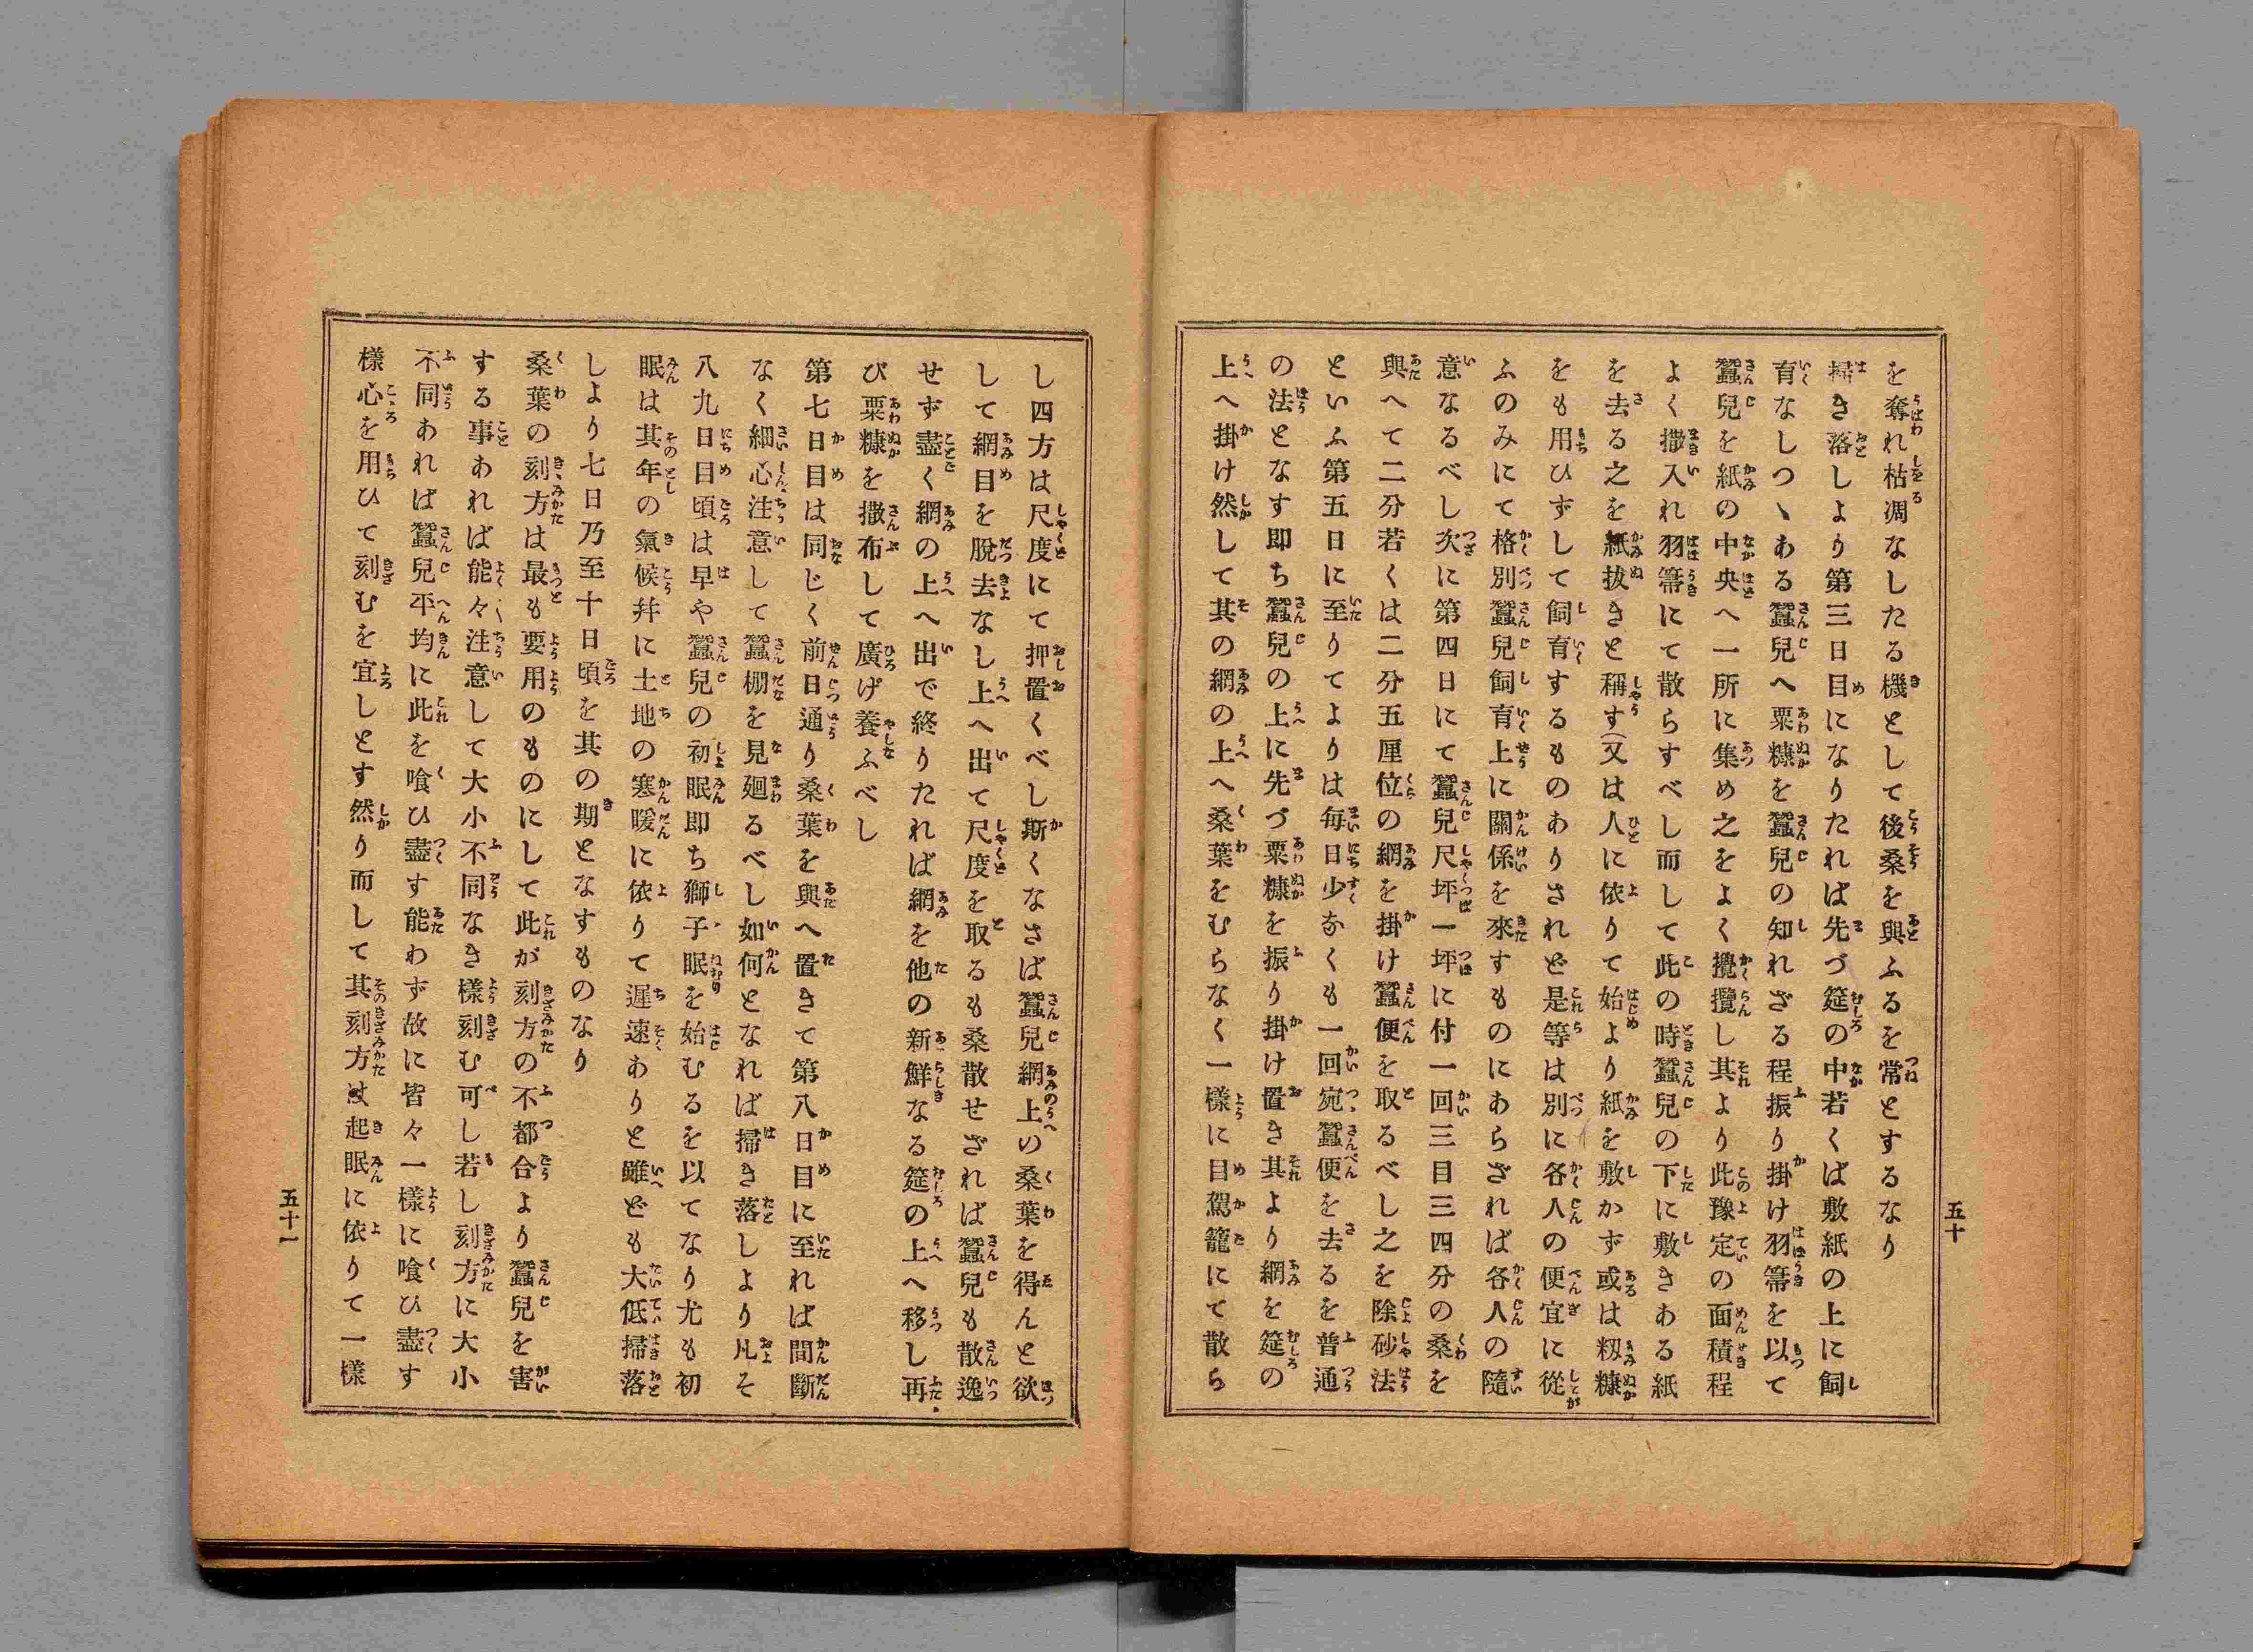 を奪れ枯凋なしたる機として後桑を與ふるを常とするなり
掃き落しより第三日目になりたれば先づ筵の中若くば敷紙の上に飼
育なしつヽある蠶兒へ粟糠を蠶兒の知れざる程振り掛け羽箒を以て
蠶兒を紙の中央へ一所に集め之をよく攪攬し其より此豫定の面積程
よく撒入れ羽箒にて散らすべし而して此の時蠶兒の下に敷きある紙
を去る之を紙拔きと稱す(又は人に依りて始より紙を敷かず或は籾糠
をも用ひずして飼育するものありされど是等は別に各人の便宜に從
ふのみにて格別蠶兒飼育上に關係を來すものにあらざれば各人の隨
意なるべし次に第四日にて蠶兒尺坪一坪に付一回三目三四分の桑を
與へて二分若くは二分五厘位の網を掛け蠶便を取るべし之を除砂法
といふ第五日に至りてよりは毎日少なくも一回宛蠶便を去るを普通
の法となす即ち蠶兒の上に先づ粟糠を振り掛け置き其より網を筵の
上へ掛け然して其の網の上へ桑葉をむらなく一樣に目駕籠にて散ら
五十
し四方は尺度にて押置くべし斯くなさば蠶兒網上の桑葉を得んと欲
して網目を脫去なし上へ出て尺度を取るも桑散せざれば蠶兒も散逸
せず盡く網の上へ出で終りたれば網を他の新鮮なる筵の上へ移し再
び粟糠を撒布して廣げ養ふべし
第七日目は同じく前日通り桑葉を與へ置きて第八日目に至れば間斷
なく細心注意して蠶棚を見廻るべし如何となれば掃き落しより凡そ
八九日目頃は早や蠶兒の初眠即ち獅子眠を始むるを以てなり尤も初
眠は其年の氣候并に土地の寒暖に依りて遲速ありと雖ども大低掃落
しより七日乃至十日頃を其の期となすものなり
桑葉の刻方は最も要用のものにして此が刻方の不都合より蠶兒を害
する事あれば能々注意して大小不同なき樣刻む可し若し刻方に大小
不同あれば蠶兒平均に此を喰ひ盡す能わず故に皆々一樣に喰ひ盡す
樣心を用ひて刻むを宜しとす然り而して其刻方は起眠に依りて一樣
五十一